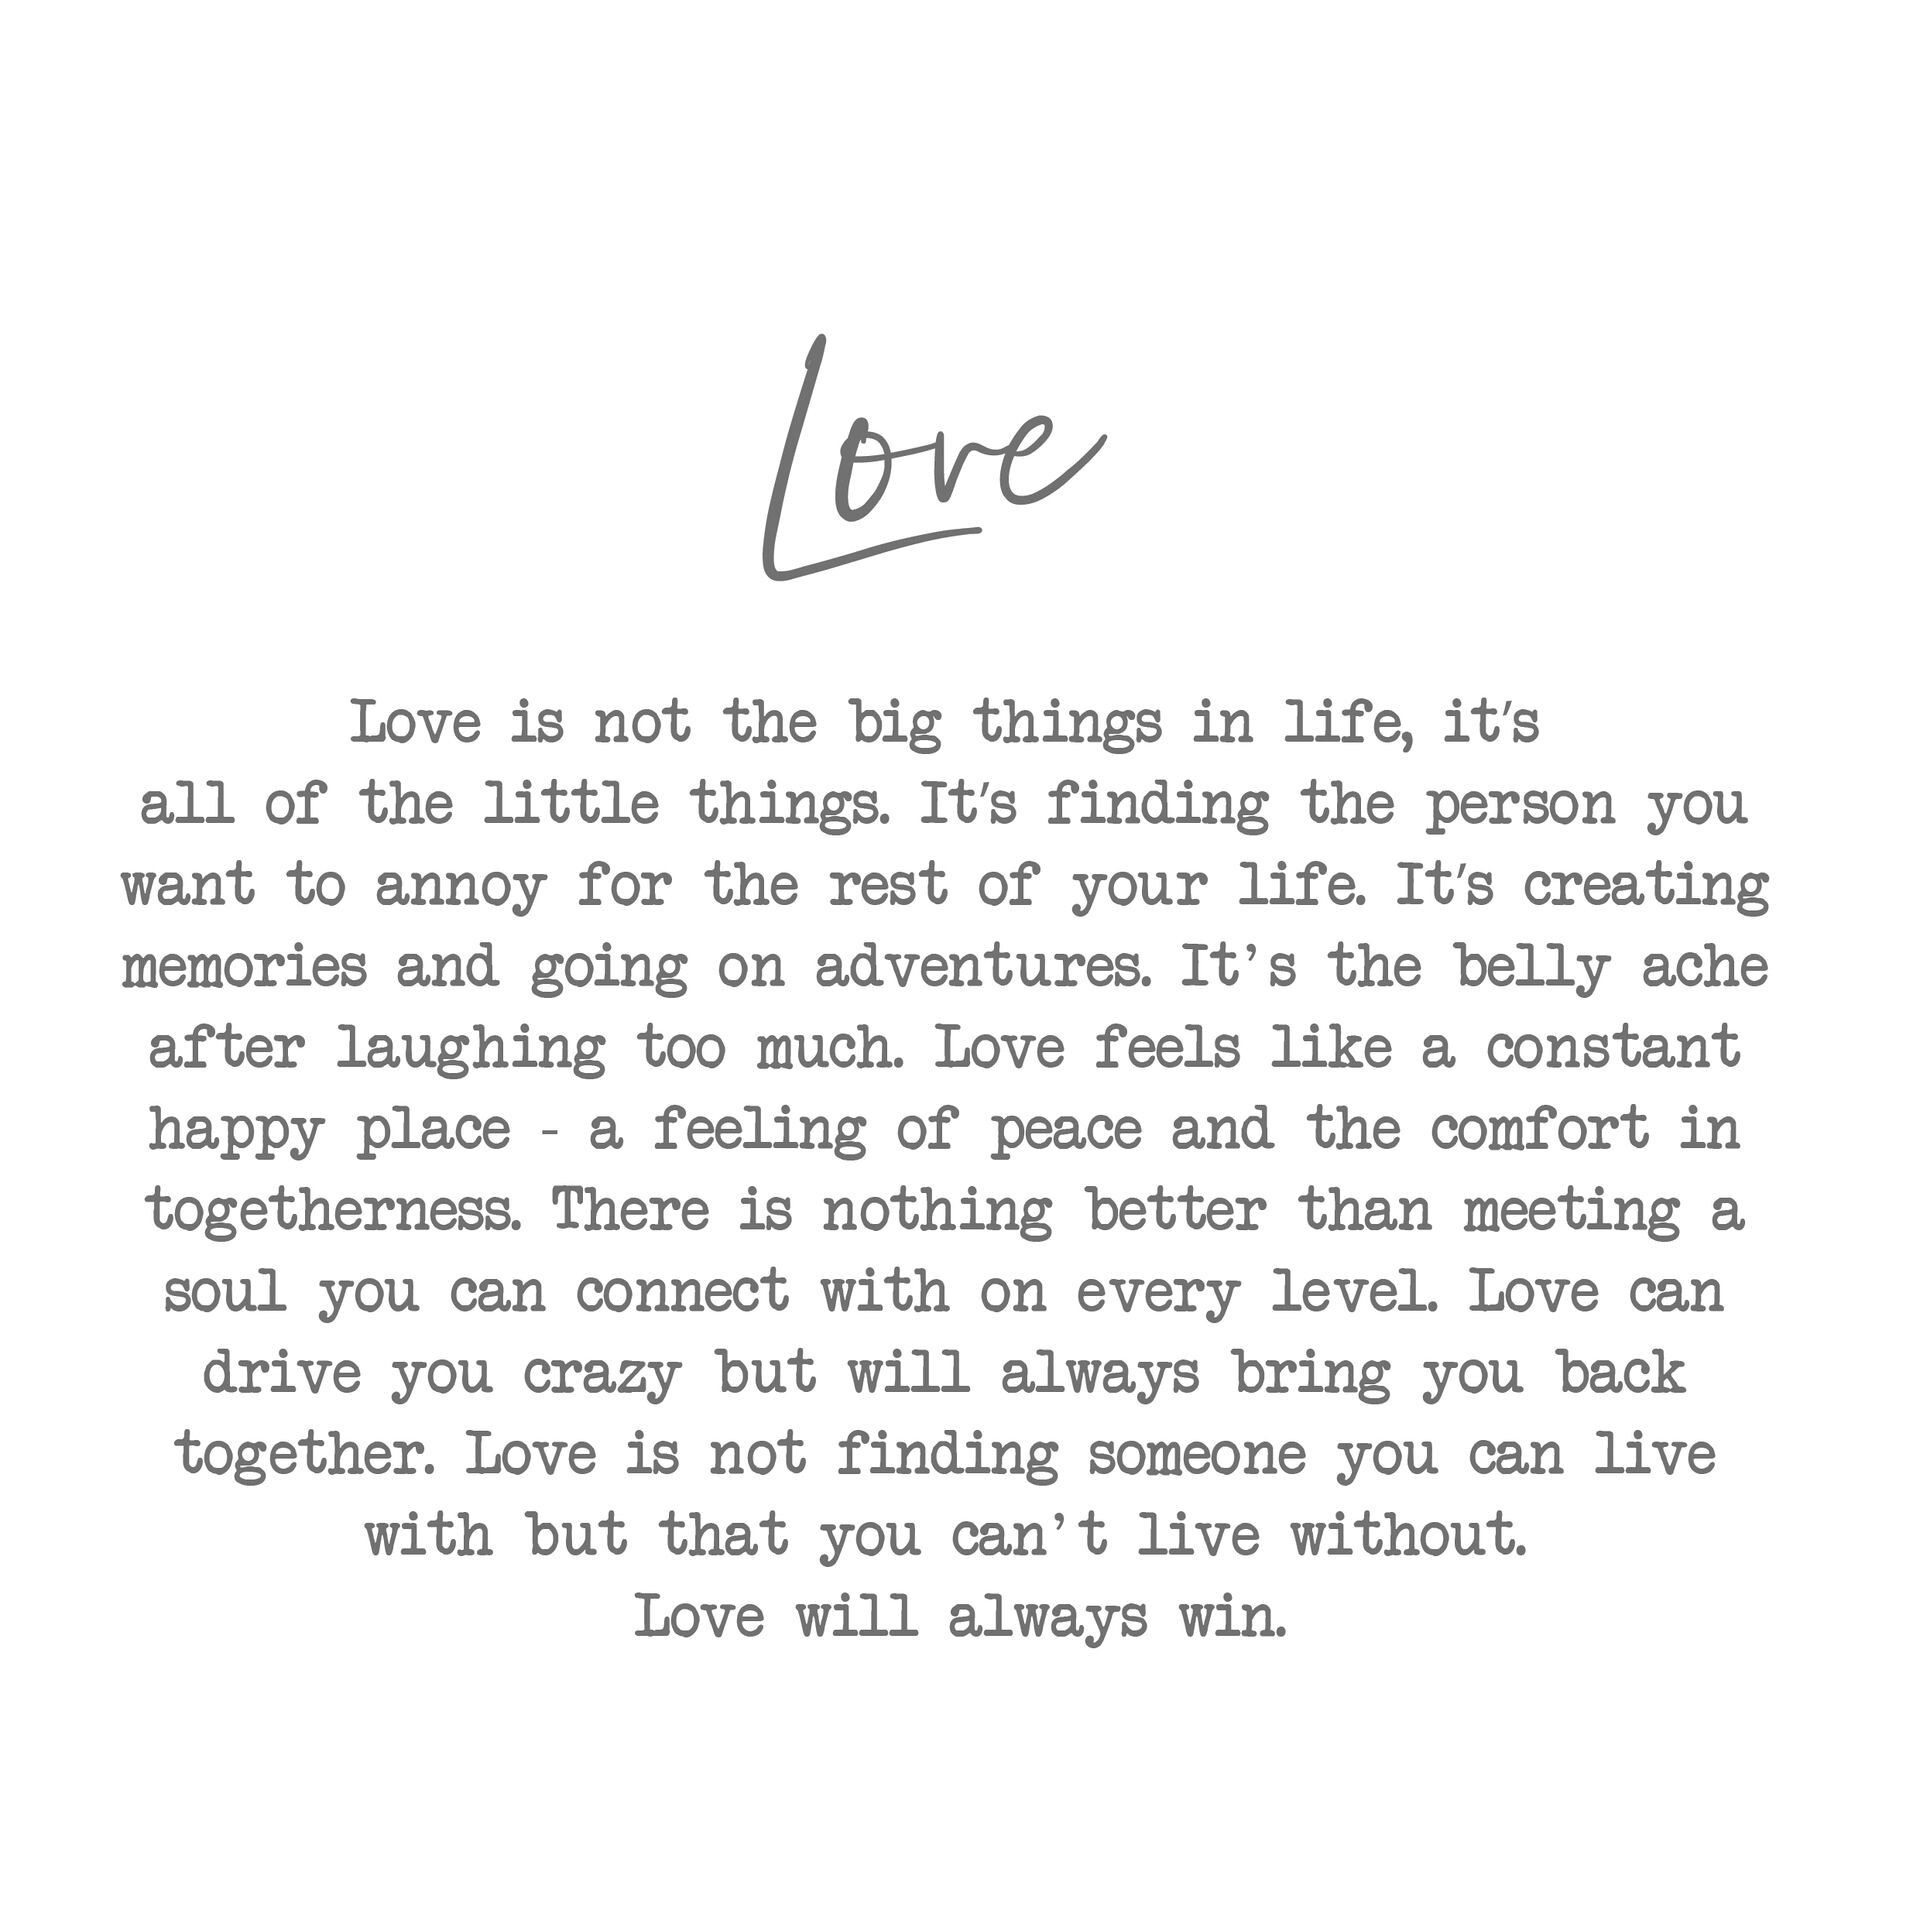 Love
Love is not the big things in life, it's
all of the little things. It's finding the person you
want to annoy for the rest of your life. It's creating
memories and going on adventures. It's the belly ache
after laughing too much. Love feels like a constant
happy place - a feeling of peace and the comfort in
togetherness. There is nothing better than meeting a
soul you can connect with on every level. Love can
drive you crazy but will always bring you back
together. Love is not finding someone you can live
with but that you can't live without.
Love will always win.